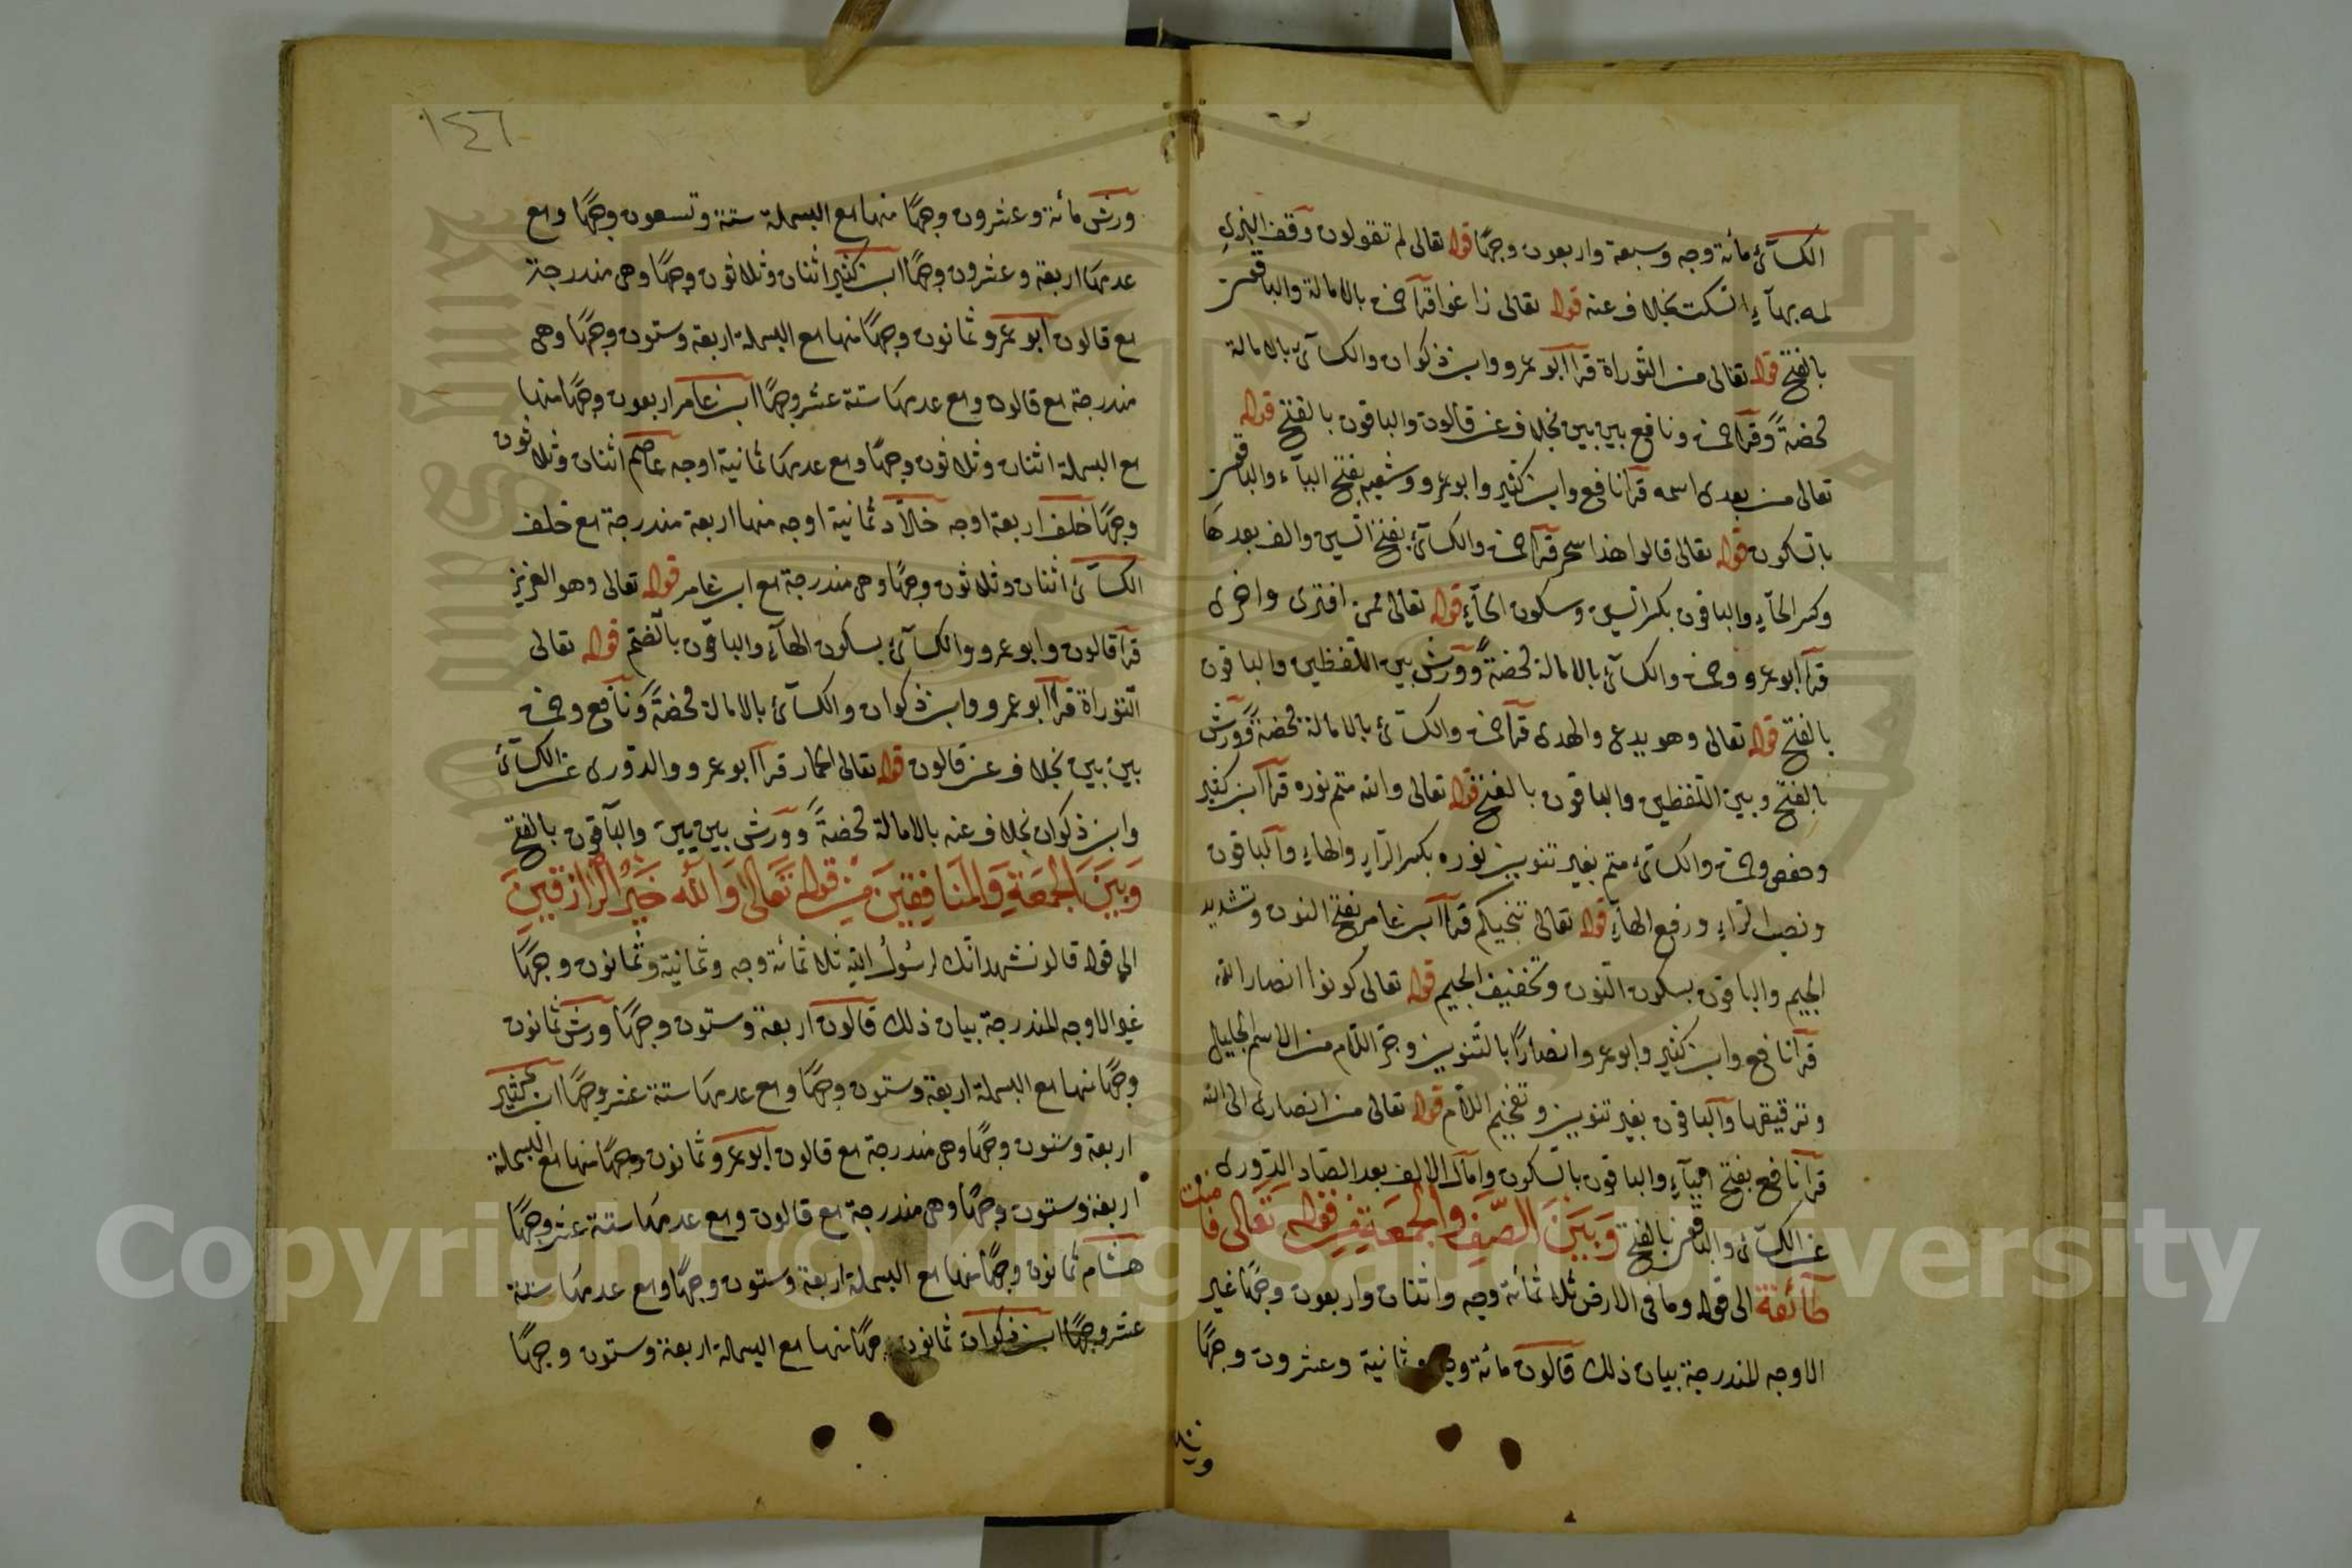 الكسآئ مأئة وجه وسبعة واربعون وجهًا قوله تعالى لم تقولون وقف البزي
لمه بهآء السكت بخلاف عنه قوله تعالى زاغوا قرأ حمزة بالامالة والباقون
بالفتح قوله تعالى من التوراة قرأ ابو عمرو وابن ذكوان والكسآئ بالامالة
محضةً وقرأ حمزة ونافع بين بين بخلاف عن قالون والباقون بالفتح قوله
تعالى من بعدى اسمه قرأ نافع وابن كثير وابو عمرو وشعبه بفتح اليآء والباقون
بالسكون قوله تعالى قالوا هذا سحر قرأ حمزة والكسآئ بفتح السين والف بعدها
وكسر الحآء والباقون بكسر السين وسكون الحآء قوله تعالى ممن افترى واخرى
قرأ ابو عمرو وحمزة والكسآئ بالامالة محضةً وورش بين اللفظين والباقون
بالفتح قوله تعالى وهو يدعى والهدى قرأ حمزة والكسآئ بالامالة محضةً وورش
بالفتح وبين اللفظين والباقون بالفتح قوله تعالى والله متم نوره قرأ ابن كثير
وحفص وحمزة والكسآئ متم بغير تنوين نوره بكسر الرآء والهاء والباقون
ونصب الرآء ورفع الهآء قوله تعالى تنجيكم قرأ ابن عامر بفتح النون وتشديد
الجيم والباقون بسكون النون وتخفيف الجيم قوله تعالى كونوا انصار الله
قرأ نافع وابن كثير وابو عمرو انصارًا بالتنوين وجر اللام من الاسم الجليل
وترقيقها والباقون بغير تنوين وتفخيم اللام قوله تعالى من انصارى الى الله
قرأ نافع بفتح اليآء والباقون بالسكون وامال الالف بعد الصاد الدورى
عن الكسآئ والباقون بالفتح وَبَيْنَ الصَّفِّ وَالْجُمعَةِ مِنْ قوله تَعَالى فآمنت
طآئفة الى قوله وما فى الارض ثلاثمائة وجه واثنان واربعون وجهًا غير
الاوجه المندرجة بيان ذلك قالون مائة وجه وثمانية وعشرون وجهًا
ورش
١٤٦
ورش مائة وعشرون وجهًا منها مع البسملة ستة وتسعون وجهًا ومع
عدمها اربعة وعشرون وجهًا ابن كثير اثنان وثلاثون وجهًا وهى مندرجة
مع قالون ابو عمرو ثمانون وجهًا منها مع البسملة اربعة وستون وجهًا وهى
مندرجة مع قالون ومع عدمها ستة عشر وجهًا ابن عامر اربعون وجهًا منها
مع البسملة اثنان وثلاثون وجهًا ومع عدمها ثمانية اوجه عاصم اثنان وثلاثون
وجهًا خلف اربعة اوجه خلاد ثمانية اوجه منها اربعة مندرجة مع خلف
الكسآئ اثنان وثلاثون وجهًا وهى مندرجة مع ابن عامر قوله تعالى وهو العزيز
قرأ قالون وابو عمرو والكسآئ بسكون الهآء والباقون بالضم قوله تعالى
التوراة قرأ ابو عمرو وابن ذكوان والكسآئ بالامالة محضةً ونافع وحمزة
بين بين بخلاف عن قالون قوله تعالى الحمار قرأ ابو عمرو والدورى عن الكسآئ
وابن ذكوان بخلاف عنه بالامالة محضةً وورش بين بين والباقون بالفتح
وَبَيْنَ الْجُمعَةِ وَالْمنَافِقِينَ مِنْ قوله تَعَالىٰ وَالله خَيْرُ الرَّازِقِينَ
الى قوله قالو نشهد انك لرسُولُ الله ثلاثمائة وجه وثمانية وثمانون وجهًا
غير الاوجه المندرجة بيان ذلك قالون اربعة وستون وجهًا ورش ثمانون
وجهًا منها مع البسملة اربعة وستون وجهًا ومع عدمها ستة عشر وجهًا ابن كثير
اربعة وستون وجهًا وهى مندرجة مع قالون ابو عمرو ثمانون وجهًا منها مع البسملة
اربعة وستون وجهًا وهى مندرجة مع قالون ومع عدمها ستة عشر وجهًا
هشام ثمانون وجهًا منها مع البسملة اربعة وستون وجهًا ومع عدمها ستة
عشر وجهًا ابن ذكوان ثمانون وجهًا منها مع البسملة اربعة وستون وجهًا
Copyright © King Saud University